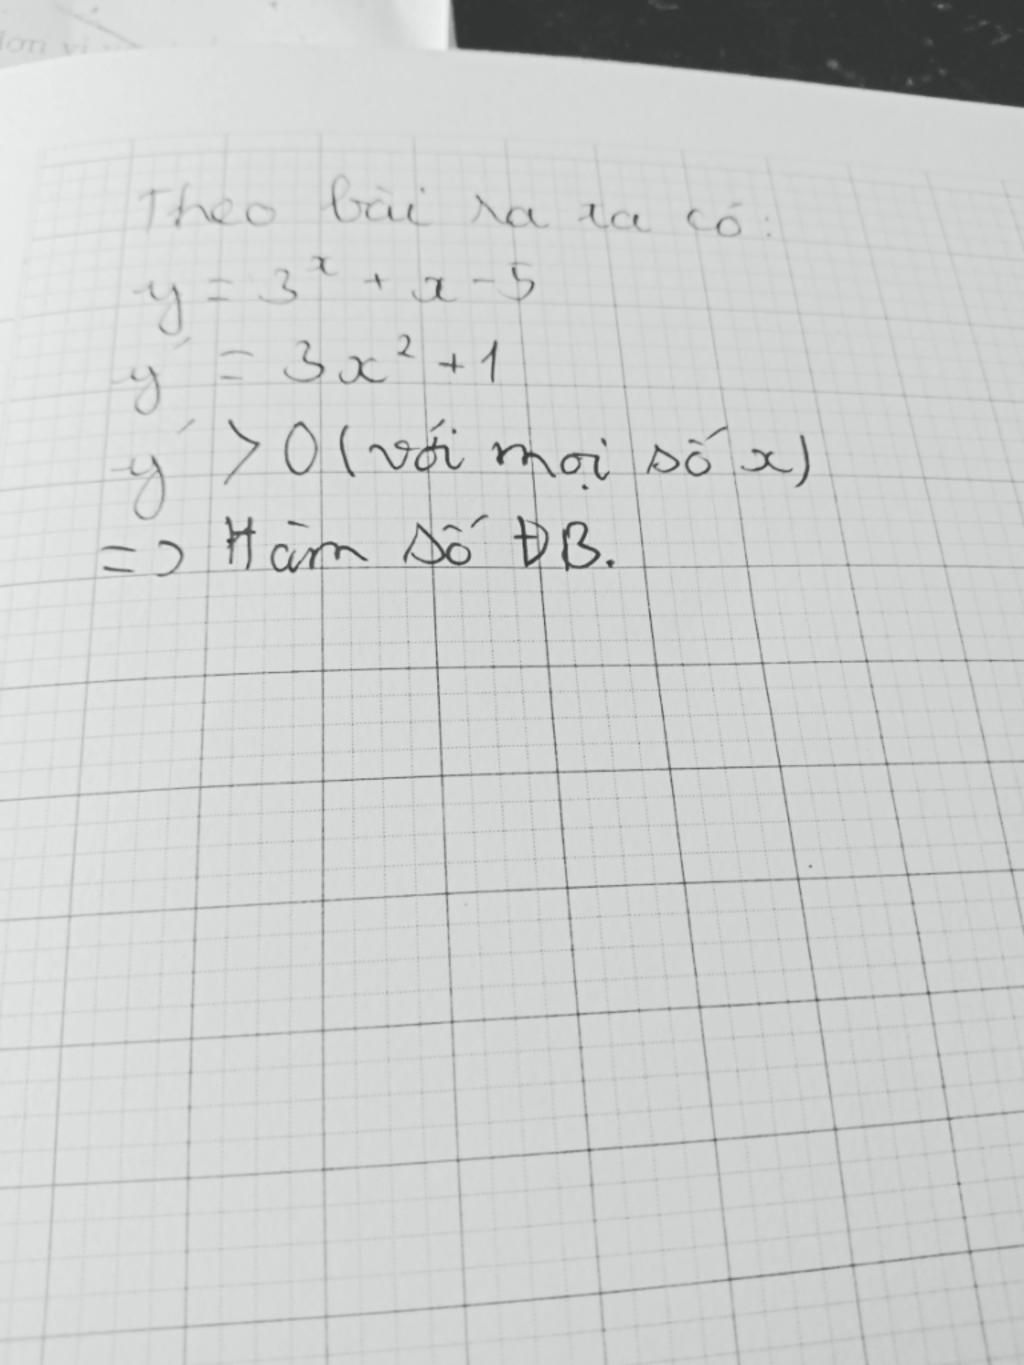 đơn vị
Theo bài ra ta có:
y = 3^x + x - 5
y' = 3x² + 1
y' > 0 (với mọi số x)
=> Hàm số ĐB.